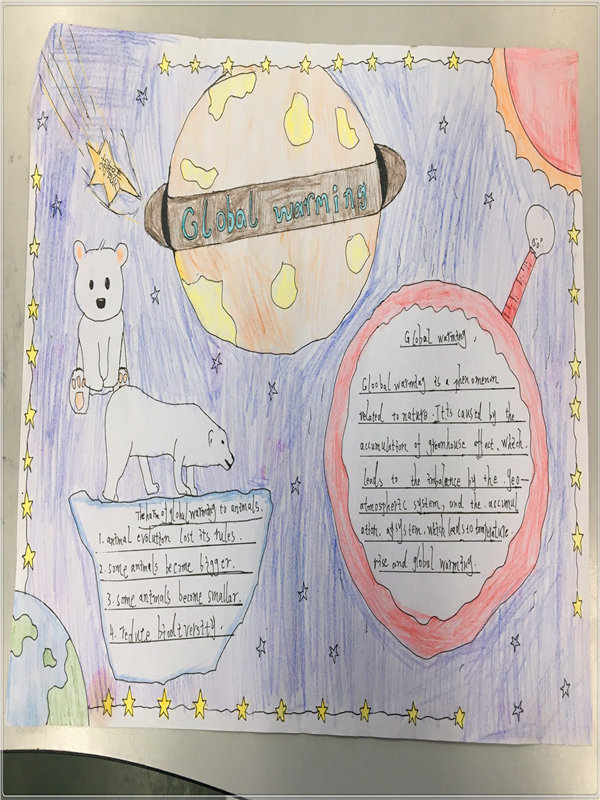 Global warming
50°
Global warming.
Gloobal warming is a phenomenon
related to nature. It is caused by the
accumulation of greenhouse effect, which
leads to the imbalance by the geo-
atmospheric system, and the accumul
ation, of system, which leads to temperature
rise and global warming.
The harm of global warming to animals.
1. animal evolution lost its rules.
2. some animals become bigger.
3. some animals become smaller.
4. reduce biodiversity